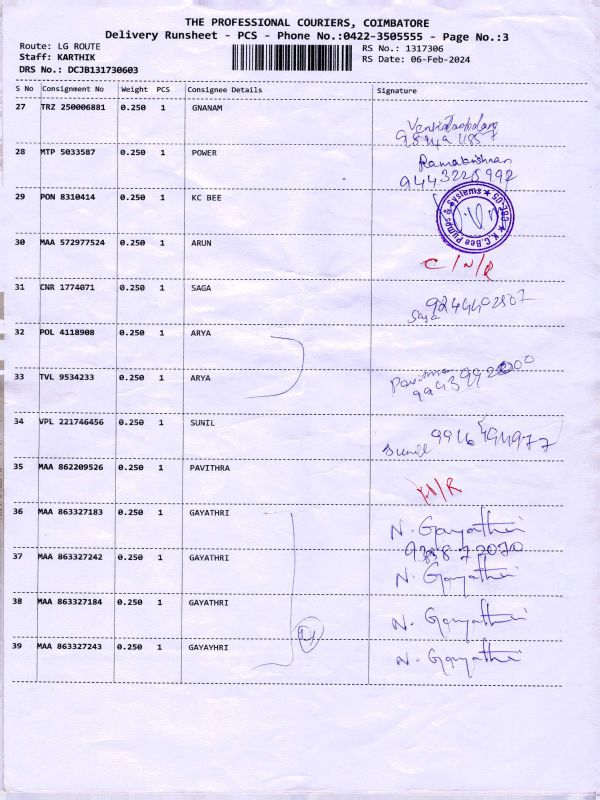 THE PROFESSIONAL COURIERS, COIMBATORE
Delivery Runsheet - PCS - Phone No.:0422-3505555 - Page No.:3
Route: LG ROUTE
RS No.: 1317306
Staff: KARTHIK
RS Date: 06-Feb-2024
DRS No.: DCJB131730603
S No Consignment No Weight PCS Consignee Details Signature
27 TRZ 250006881 0.250 1 GNANAM
28 MTP 5033587 0.250 1 POWER Ramakrishnan
9443225992
29 PON 8310414 0.250 1 KC BEE
K.C.Bee Pumps & Systems ★ CBE-05 ★
30 MAA 572977524 0.250 1 ARUN
C/N/R
31 CNR 1774071 0.250 1 SAGA
9244402807
Saga
32 POL 4118908 0.250 1 ARYA
33 TVL 9534233 0.250 1 ARYA Pavithra
34 VPL 221746456 0.250 1 SUNIL
Sunil
35 MAA 862209526 0.250 1 PAVITHRA
N/R
36 MAA 863327183 0.250 1 GAYATHRI N. Gayathri
37 MAA 863327242 0.250 1 GAYATHRI N. Gayathri
38 MAA 863327184 0.250 1 GAYATHRI N. Gayathri
39 MAA 863327243 0.250 1 GAYAYHRI N. Gayathri